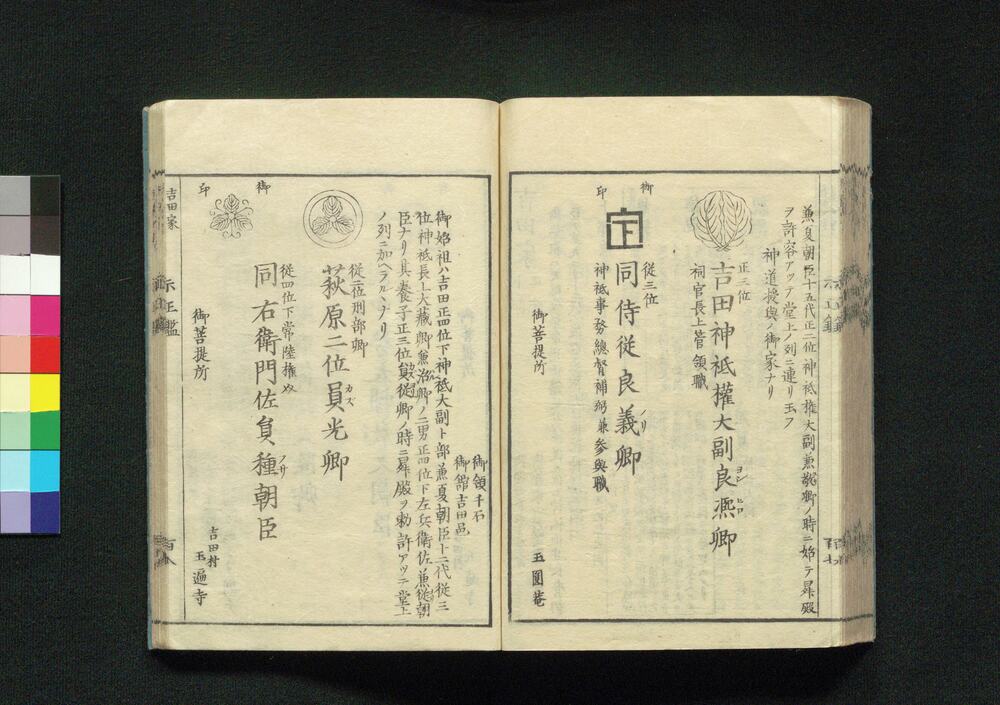 兼夏朝臣十五代正二位神祗權大副兼敬卿ノ時ニ始テ昇殿
ヲ許容アッテ堂上ノ列ニ連リ玉フ
神道授與ノ御家ナリ
正三位
吉田神祗權大副良凞卿
ヨシ ヒロ
祠官長上管領職
御
印
從三位
同侍從良義卿
ノリ
神祗事務總督補弼兼參與職
御菩提所
玉圓菴
御領千石
御舘吉田邑
御始祖ハ吉田正四位下神祗大副卜部兼夏朝臣十二代從三
位神祗長上大藏卿兼治卿ノ二男正四位下左兵衛佐兼從朝
臣ナリ其養子正三位員從卿ノ時ニ昇殿ヲ勅許アッテ堂上
ノ列ニ加ヘラルヽナリ
御
印
從二位刑部卿
萩原二位員光卿
カズ
從四位下常陸權
同右衛門佐員種朝臣
御菩提所
吉田村
玉遍寺
吉田家